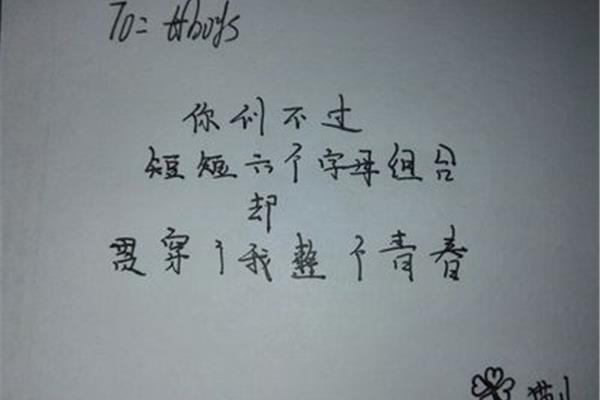 To= tfboys
你们不过
短短六个字母组合
却
贯穿了我整个青春